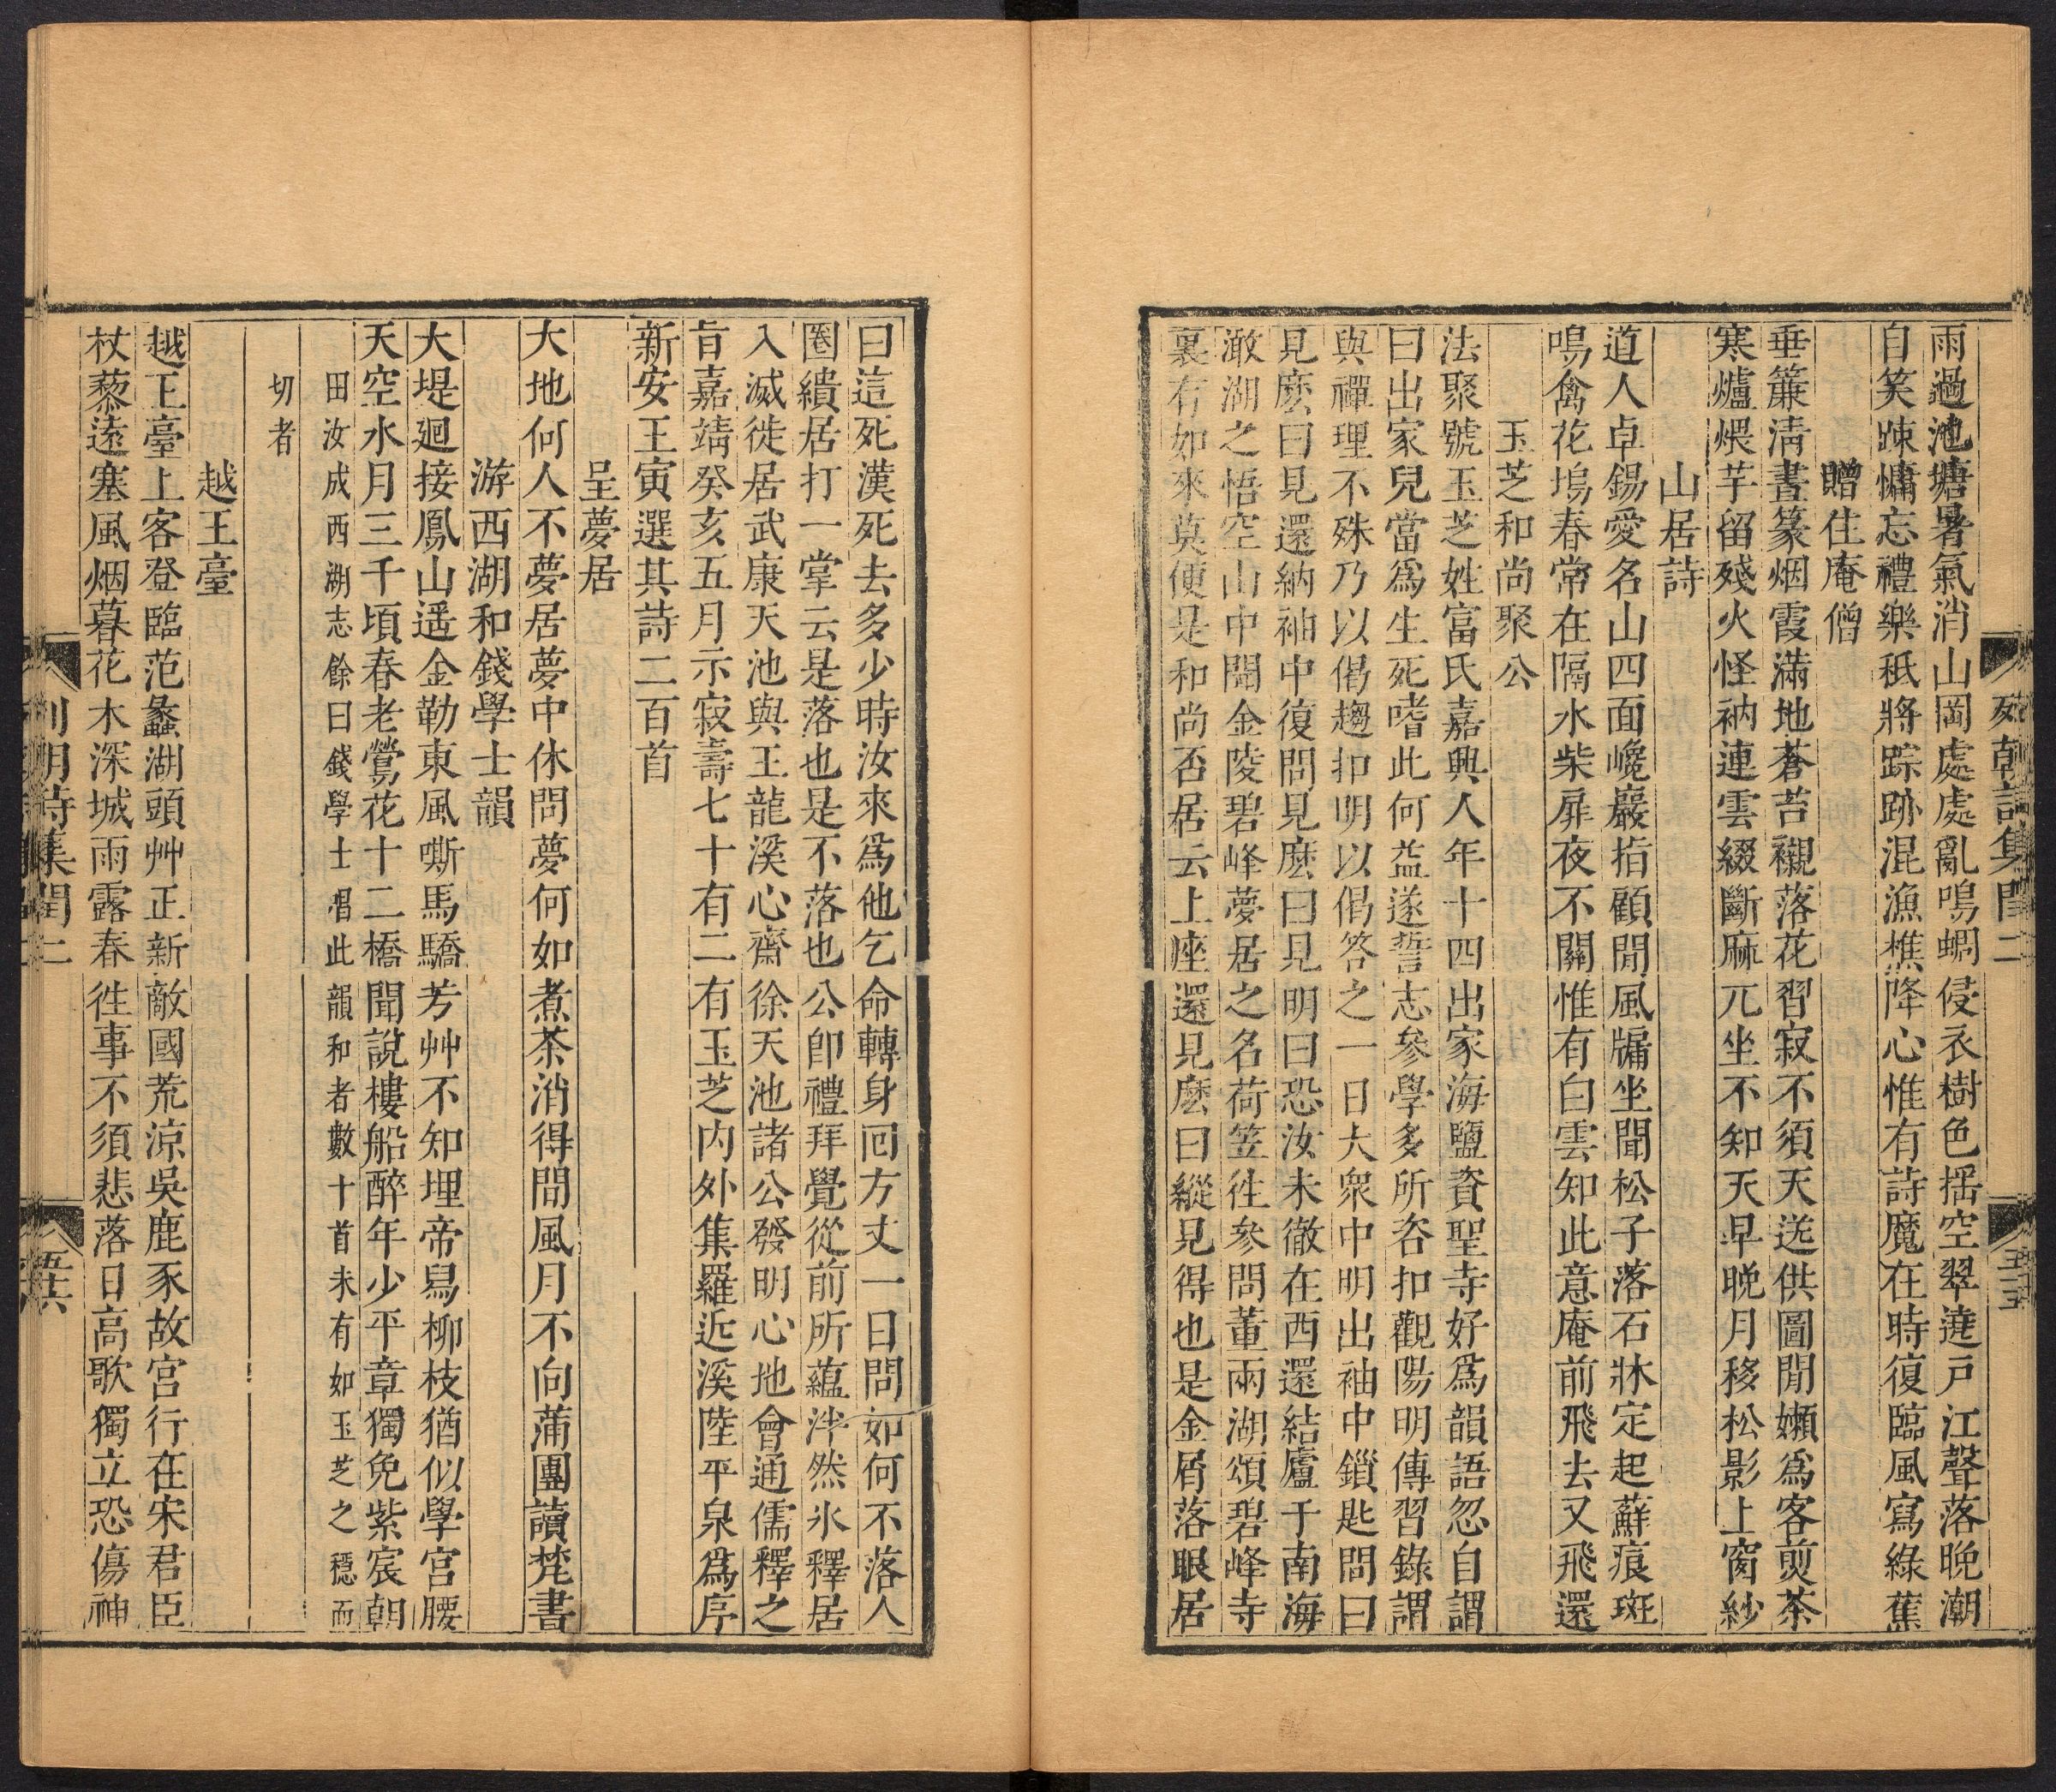 雨過池塘暑氣消山岡處處亂鳴蜩侵衣樹色揺空翠遶戸江聲落晚潮
自笑踈慵忘禮樂秖將踪跡混漁樵降心惟有詩魔在時復臨風寫綠蕉
贈住庵僧
垂簾淸晝篆烟霞滿地蒼苔襯落花習寂不須天送供圖閒嬾爲客煎茶
寒爐煨芋留殘火怪衲連雲綴斷麻兀坐不知天早晚月移松影上窗紗
山居詩
道人卓錫愛名山四面巉巖指顧間風牖坐聞松子落石牀定起蘇痕斑
鳴禽花塢春常在隔水柴扉夜不關惟有白雲知此意庵前飛去又飛還
玉芝和尚聚公
法聚號玉芝姓富氏嘉興人年十四出家海鹽資聖寺好爲韻語忽自謂
曰出家兒當爲生死嗜此何益遂誓志參學多所咨扣觀陽明傳習錄謂
與禪理不殊乃以偈趨扣明以偈答之一日大衆中明出袖中鎖匙問曰
見麽曰見還納袖中復問見麽曰見明曰恐汝未徹在西還結廬于南海
澉湖之悟空山中聞金陵碧峰夢居之名荷笠徃參問董兩湖頌碧峰寺
裏有如來莫便是和尚否居云上座還見麽曰縱見得也是金屑落眼居
列朝詩集閏二
五十五
曰這死漢死去多少時汝來爲他乞命轉身囘方丈一日問如何不落人
圈繢居打一掌云是落也是不落也公卽禮拜覺從前所蘊泮然氷釋居
入滅徙居武康天池與王龍溪心齋徐天池諸公發明心地會通儒釋之
旨嘉靖癸亥五月示寂壽七十有二有玉芝内外集羅近溪陸平泉爲序
新安王寅選其詩二百首
呈夢居
大地何人不夢居夢中休問夢何如煮茶消得閒風月不向蒲團讀梵書
游西湖和錢學士韻
大堤廻接鳳山遥金勒東風嘶馬驕芳艸不知埋帝舄柳枝猶似學宮腰
天空水月三千頃春老鶯花十二橋聞說樓船醉年少平章獨免紫宸朝
田汝成西湖志餘曰錢學士唱此韻和者數十首未有如玉芝之穩而
切者
越王臺
越王臺上客登臨范蠡湖頭艸正新敵國荒涼吳鹿豕故宮行在宋君臣
杖藜遠塞風烟暮花木深城雨露春徃事不須悲落日高歌獨立恐傷神
列明詩集閏二
五十六